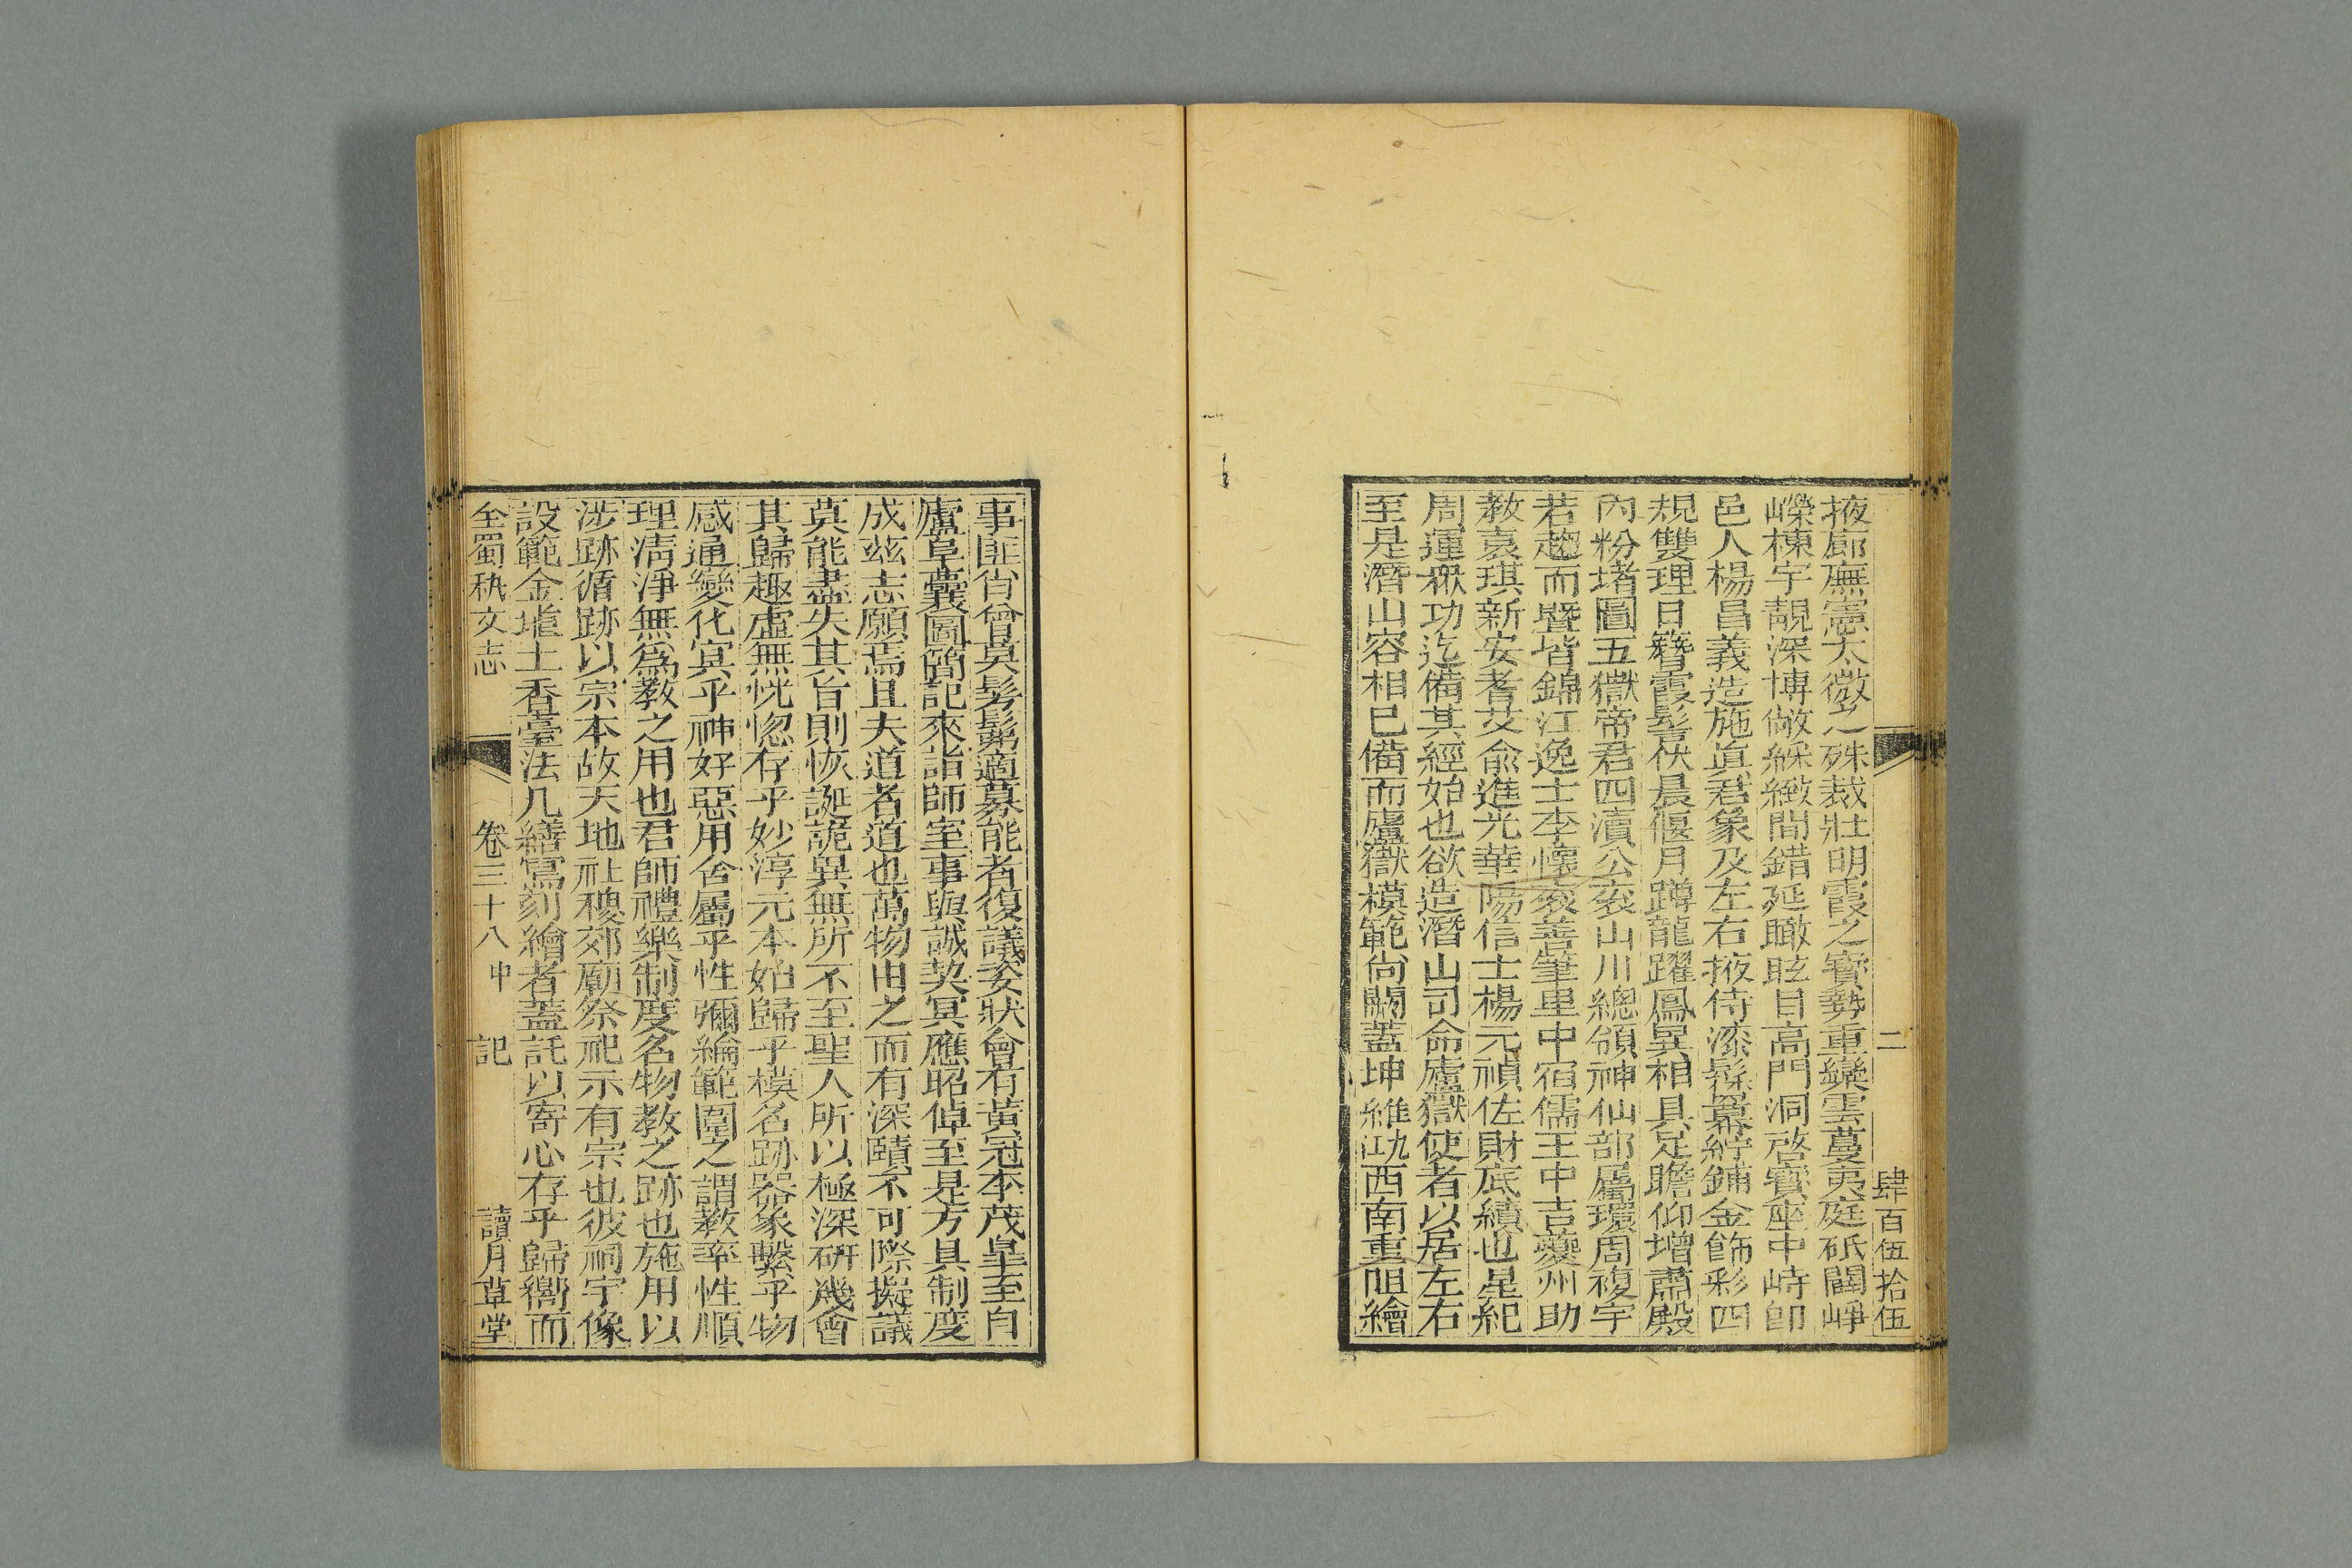 二 肆百伍拾伍
掖廊廡憲太微之殊裁壯明霞之寶勢重欒雲蔓夷庭砥闢崢
嶸棟宇靚深博敞綵緻間錯延瞰眩目高門洞啓寶座中峙卽
邑人楊昌義造施眞君象及左右掖侍漆髹羃紵鋪金飾彩四
規雙理日簪霞髻伏晨偃月蹲龍躍鳳異相具足瞻仰增肅殿
內粉堵圖五獄帝君四瀆公衮山川總領神仙部屬環周複宇
若趨而曁皆錦江逸士李懷衮善肇里中宿儒王中吉夔州助
教袁琪新安耆艾兪進光華陽信士楊元禎佐財底績也星紀
周運衆功迄備其經始也欲造潛山司命廬獄使者以居左右
至是潛山容相已備而廬獄模範尙闕蓋坤維㓛西南重阻繪
事匪肖曾莫髣髴適募能者復議姿狀會有黃冠李茂皐至自
廬阜囊圖簡記來詣師室事與誠契冥應昭倬至是方具制度
成茲志願焉且夫道者道也萬物由之而有深賾不可際擬議
莫能盡失其旨則恢誕詭異無所不至聖人所以極深硏幾會
其歸趣虛無恍惚存乎妙淳元本始歸乎模名跡器象繫乎物
感通變化冥乎神好惡用舍屬乎性彌綸範圍之謂教率性順
理淸淨無爲教之用也君師禮樂制度名物教之跡也施用以
涉跡循跡以宗本故天地社稷郊廟祭祀示有宗也彼祠宇像
設範金塑土香臺法几繕寫刻繪者蓋託以寄心存乎歸嚮而
全蜀秇文志 卷三十八中 記 讀月草堂